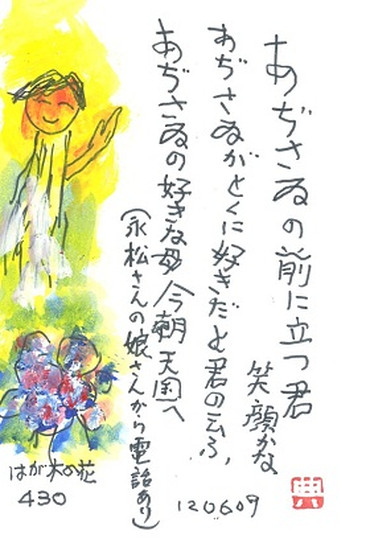 あぢさゐの前に立つ君
笑顔かな
あぢさゐがとくに好きだと君の云ふ、
あぢさゐの好きな母今朝天国へ
(永松さんの娘さんから電話あり)
120609
典
はが木の花
430